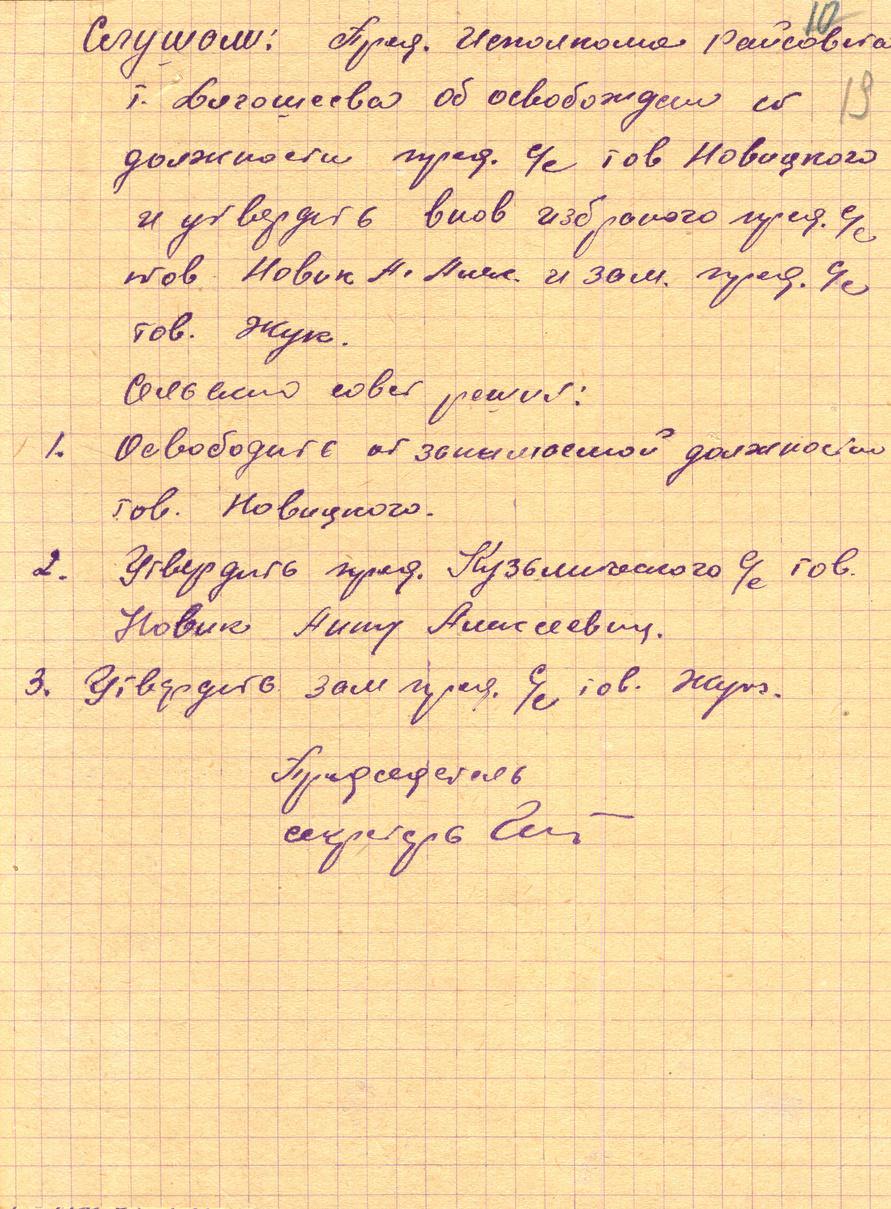 10
19
Слушали: Пред. Исполкома райсовета
т. об освобождении от
должности пред. с/с тов Новицкого
и утвердить внов избраного пред. с/с
тов Новик А. Алек. и зам. пред. с/с
тов. Жук.
Сельский совет решил:
1. Освободить от занимаемой должности
тов. Новицкого.
2. Утвердить пред. Кузьмического с/с тов.
Новик Анну Алексеевну.
3. Утвердить зам пред. с/с тов. Жук.
Председатель
секретарь